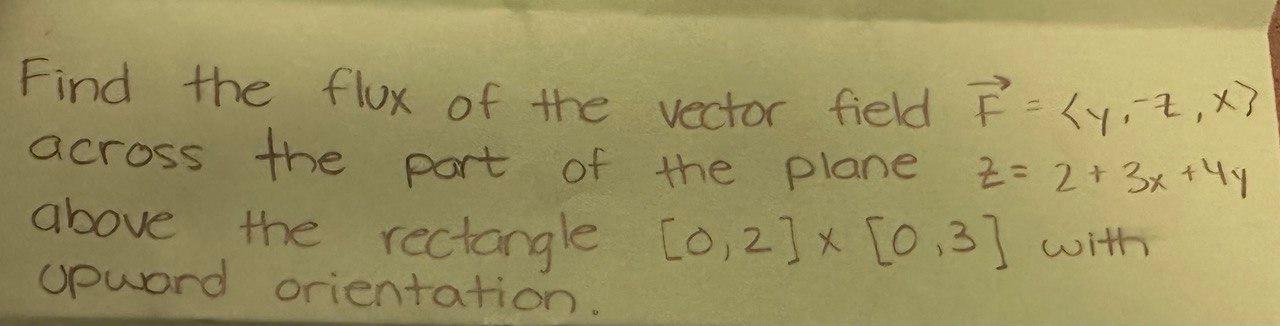 Find the flux of the vector field F⃗ = ⟨y, -z, x⟩
across the part of the plane z = 2 + 3x + 4y
above the rectangle [0,2] x [0,3] with
upward orientation.